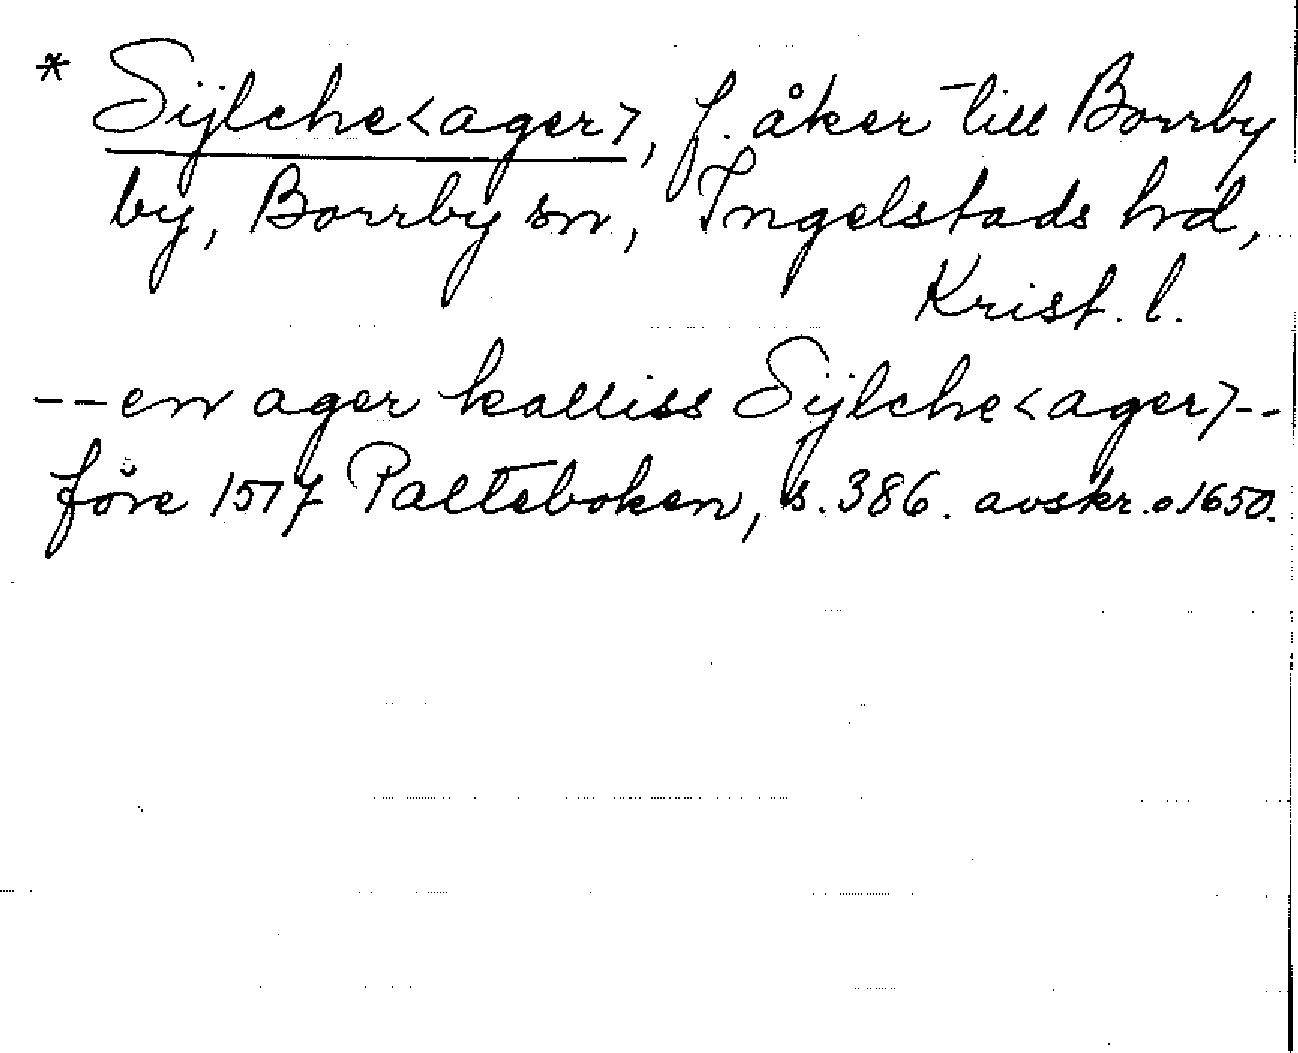 * Sÿlche<ager>, f. åker till Borrby
by, Borrby sn, Ingelstads hd,
Krist. l.
-- en ager kalliss Sÿlche<ager> --
före 1577 Palteboken, s. 386. avskr. o 1650.